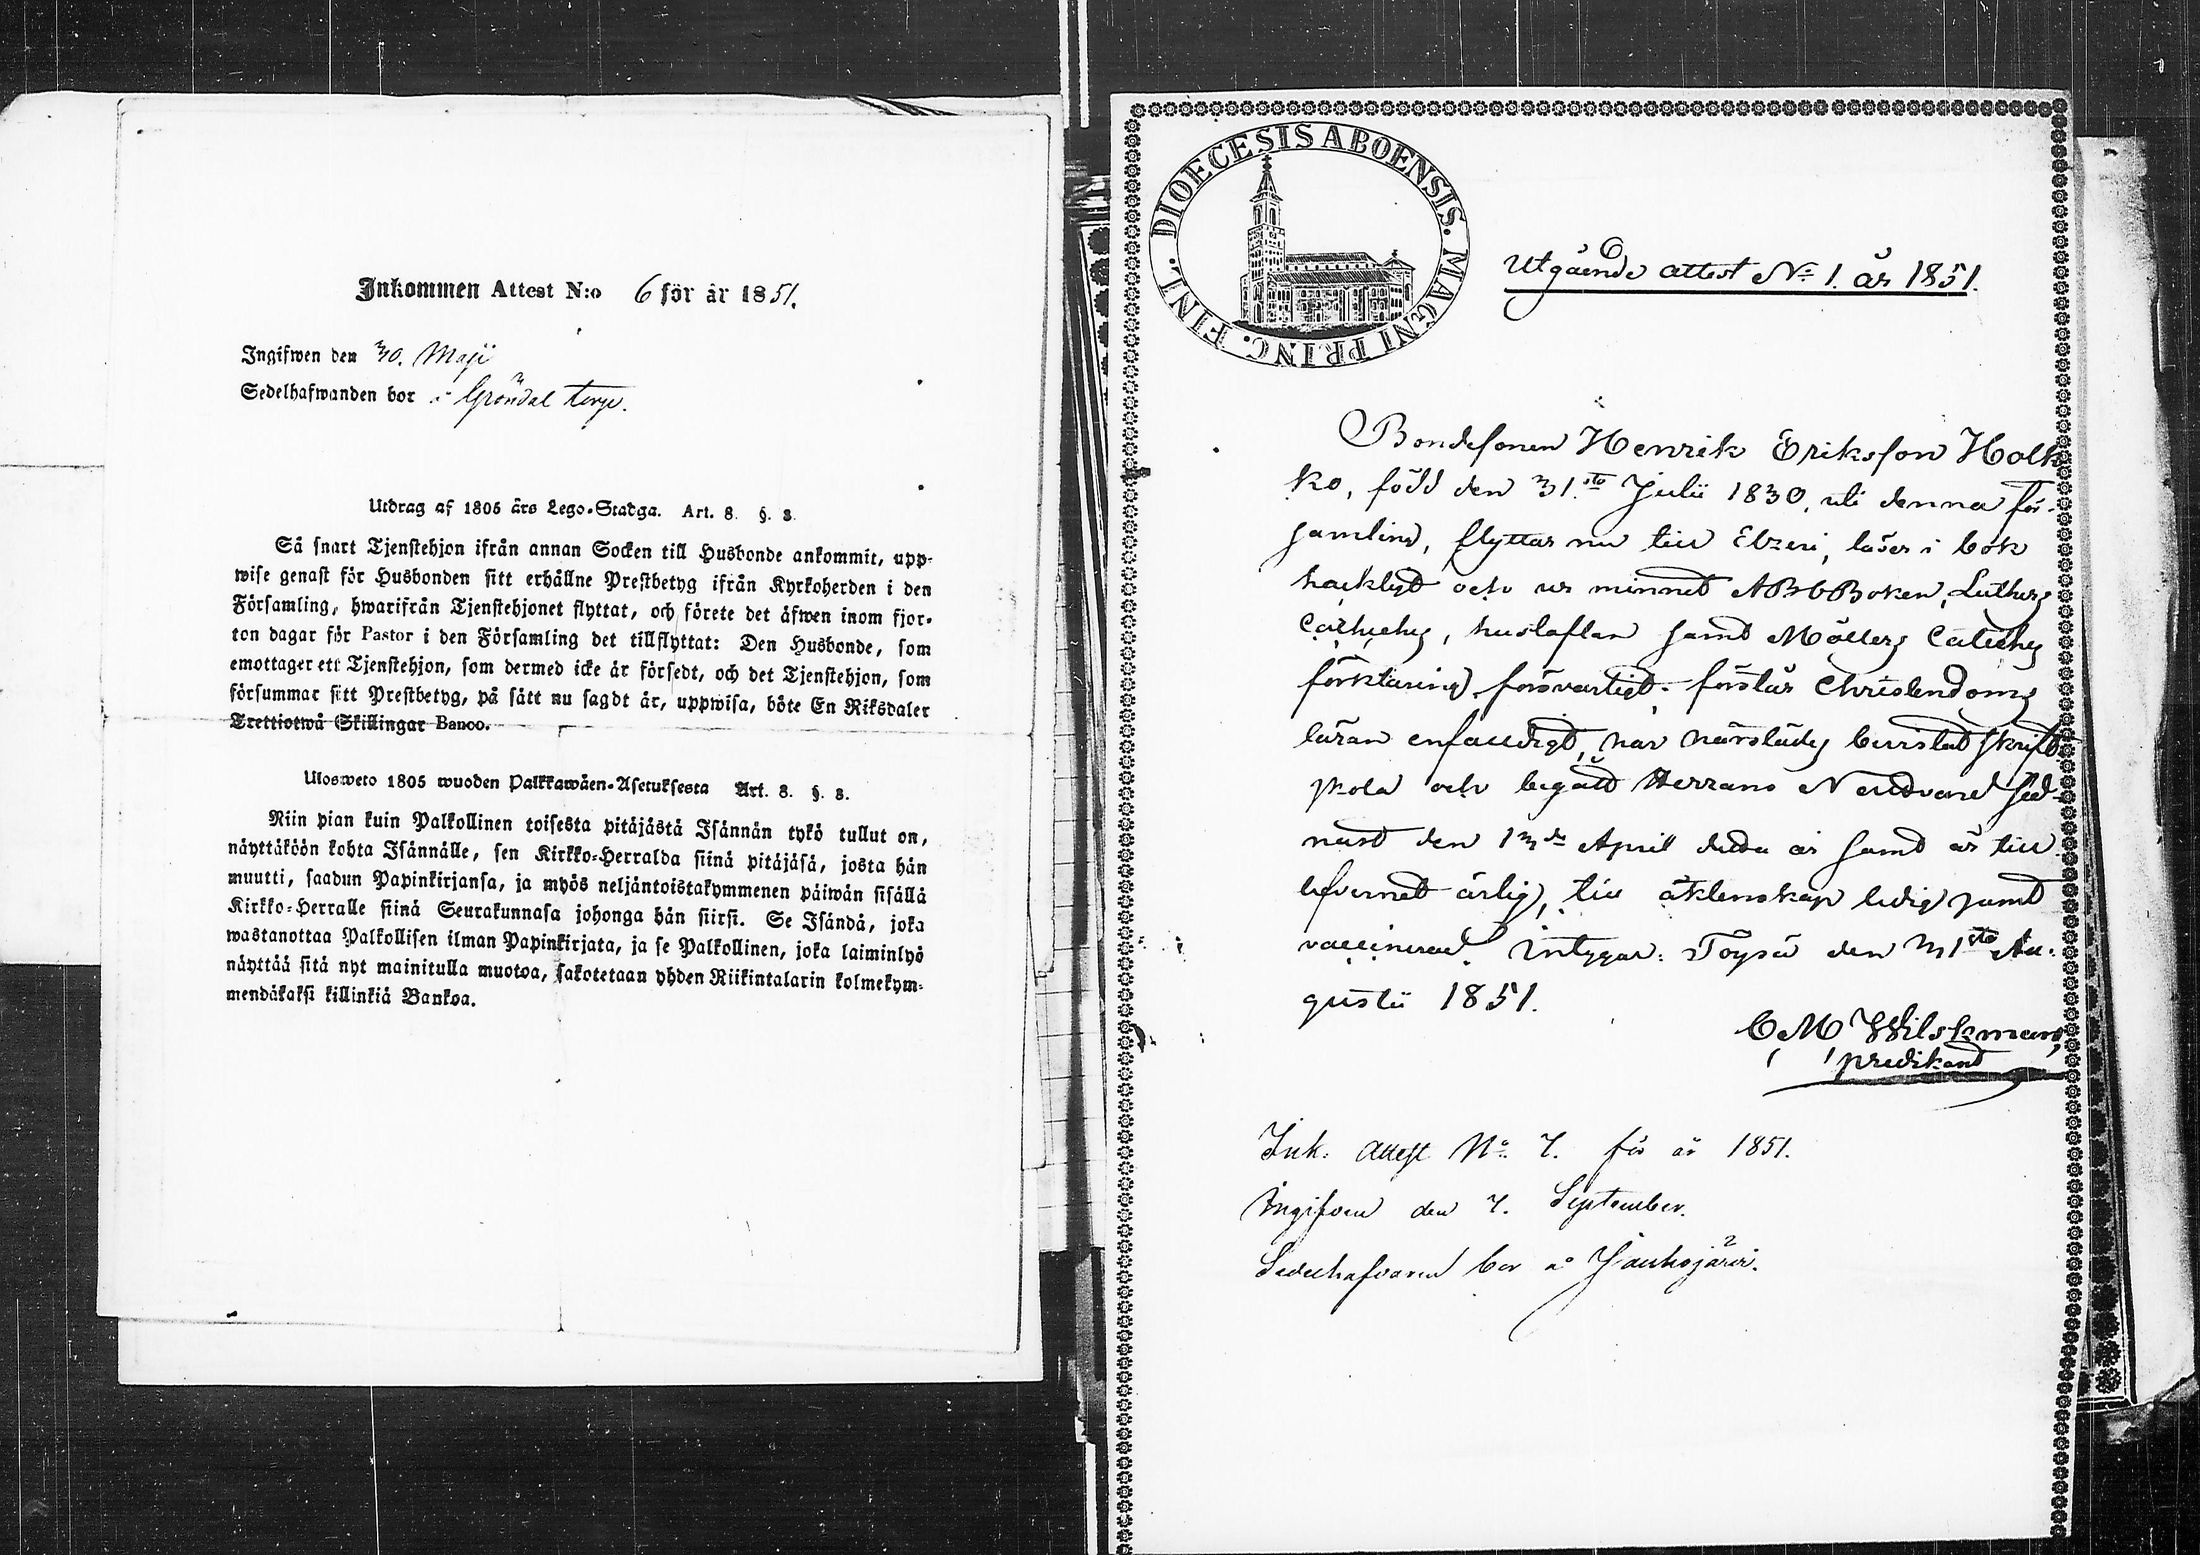 Inkommen Attest N:o 6 för år 1851.
Ingifwen den 30. Maji
Sedelhafwanden bor i Gröndal torp.
Utdrag af 1805 års Lego-Stadga. Art. 8. §. 8.
Så snart Tjenstehjon ifrån annan Socken till Husbonde ankommit, upp-
wise genast för Husbonden sitt erhållne Prestbetyg ifrån Kyrkoherden i den
Församling, hwarifrån Tjenstehjonet flyttat, och förete det äfwen inom fjor-
ton dagar för Pastor i den Församling det tillflyttat: Den Husbonde, som
emottager ett Tjenstehjon, som dermed icke är försedt, och det Tjenstehjon, som
försummar sitt Prestbetyg, på sätt nu sagdt är, uppwisa, böte En Riksdaler
Trettiotwå Skillingar Banco.
Ulosweto 1805 wuoden Palkkawäen-Asetuksesta Art. 8. §. 8.
Niin pian kuin Palkollinen toisesta pitäjästä Isännän tykö tullut on,
näyttäköön kohta Isännälle, sen Kirkko-Herralda siinä pitäjäsä, josta hän
muutti, saadun Papinkirjansa, ja myös neljäntoistakymmenen päiwän sisällä
Kirkko-Herralle siinä Seurakunnasa johonga hän siirsi. Se Isändä, joka
wastanottaa Palkollisen ilman Papinkirjata, ja se Palkollinen, joka laiminlyö
näyttää sitä nyt mainitulla muotoa, sakotetaan yhden Riikintalarin kolmekym-
mendäkaksi killinkiä Bankoa.
DIOECESIS ABOENSIS. MAGNI PRINC. FINL.
Utgående attest No 1. år 1851.
Bondesonen Henrik Eriksson Holk
ko, född den 31ste Julii 1830, uti denna för-
samling, flyttar nu till Etzeri, läser i bok
hackligt och ur minnet ABCBoken, Luthers
Cathches, hustaflan samt Möllers Cateches
förklaring försvarligt. förstår Christendoms
läran enfaldigt, har närstädes bevistat skrift
skola och begått Herrans Nattvard sed-
nast den 13de April detta år samt är till
lefvernet ärlig, till äktenskap ledig samt
vaccinerad. Intygar: Töysä den 31ste Au-
gustii 1851.
C M Wilskman,
predikant
Ink. Attest No 7. för år 1851.
Ingifven den 7. September.
Sedelhafvaren bor å